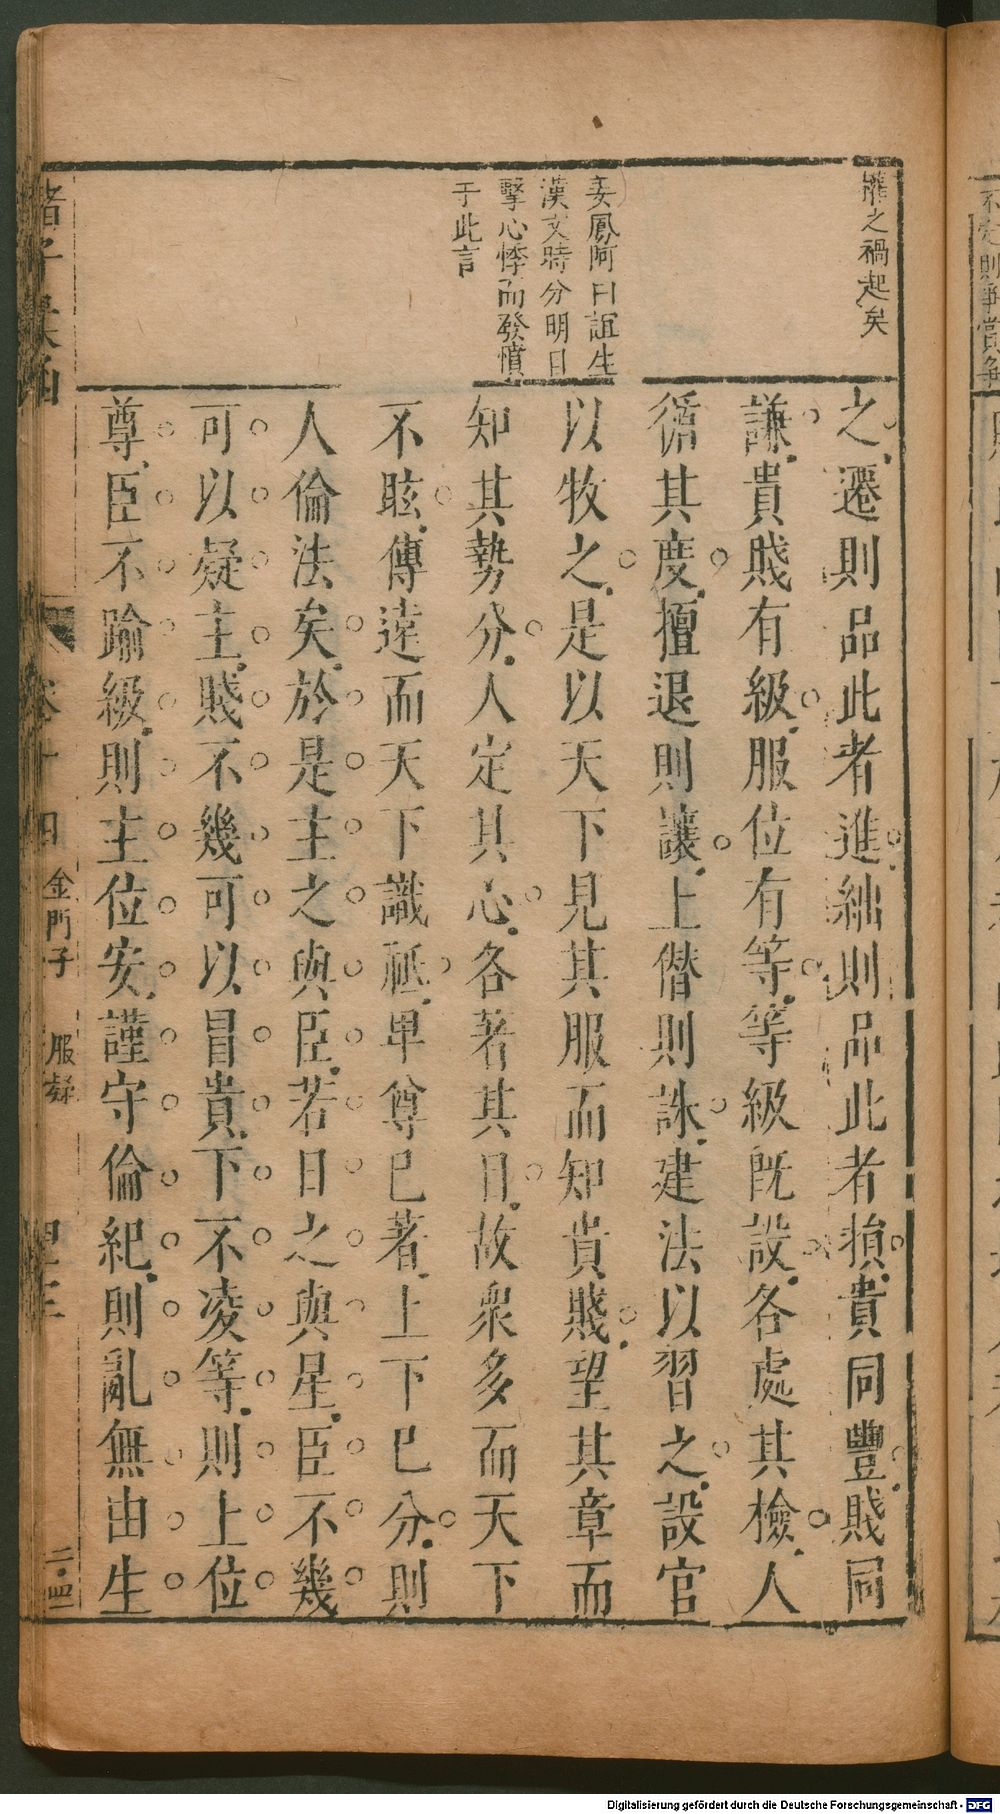 權之禍起矣
姜鳳阿曰誼生
漢文時分明目
擊心悸而發憤
于此言
之遷則品此者進絀則品此者損貴同豐賤同
謙貴賤有級服位有等等級既設各處其檢人
循其度擅退則讓上僭則誅建法以習之設官
以牧之是以天下見其服而知貴賤望其章而
知其勢分人定其心各著其目故衆多而天下
不眩傳遠而天下識祗卑尊已著上下已分則
人倫法矣於是主之與臣若日之與星臣不幾
可以疑主賤不幾可以冒貴下不凌等則上位
尊臣不踰級則主位安謹守倫紀則亂無由生
諸子彙函
卷十四
金門子
服疑
二・四
Digitalisierung gefördert durch die Deutsche Forschungsgemeinschaft - DFG